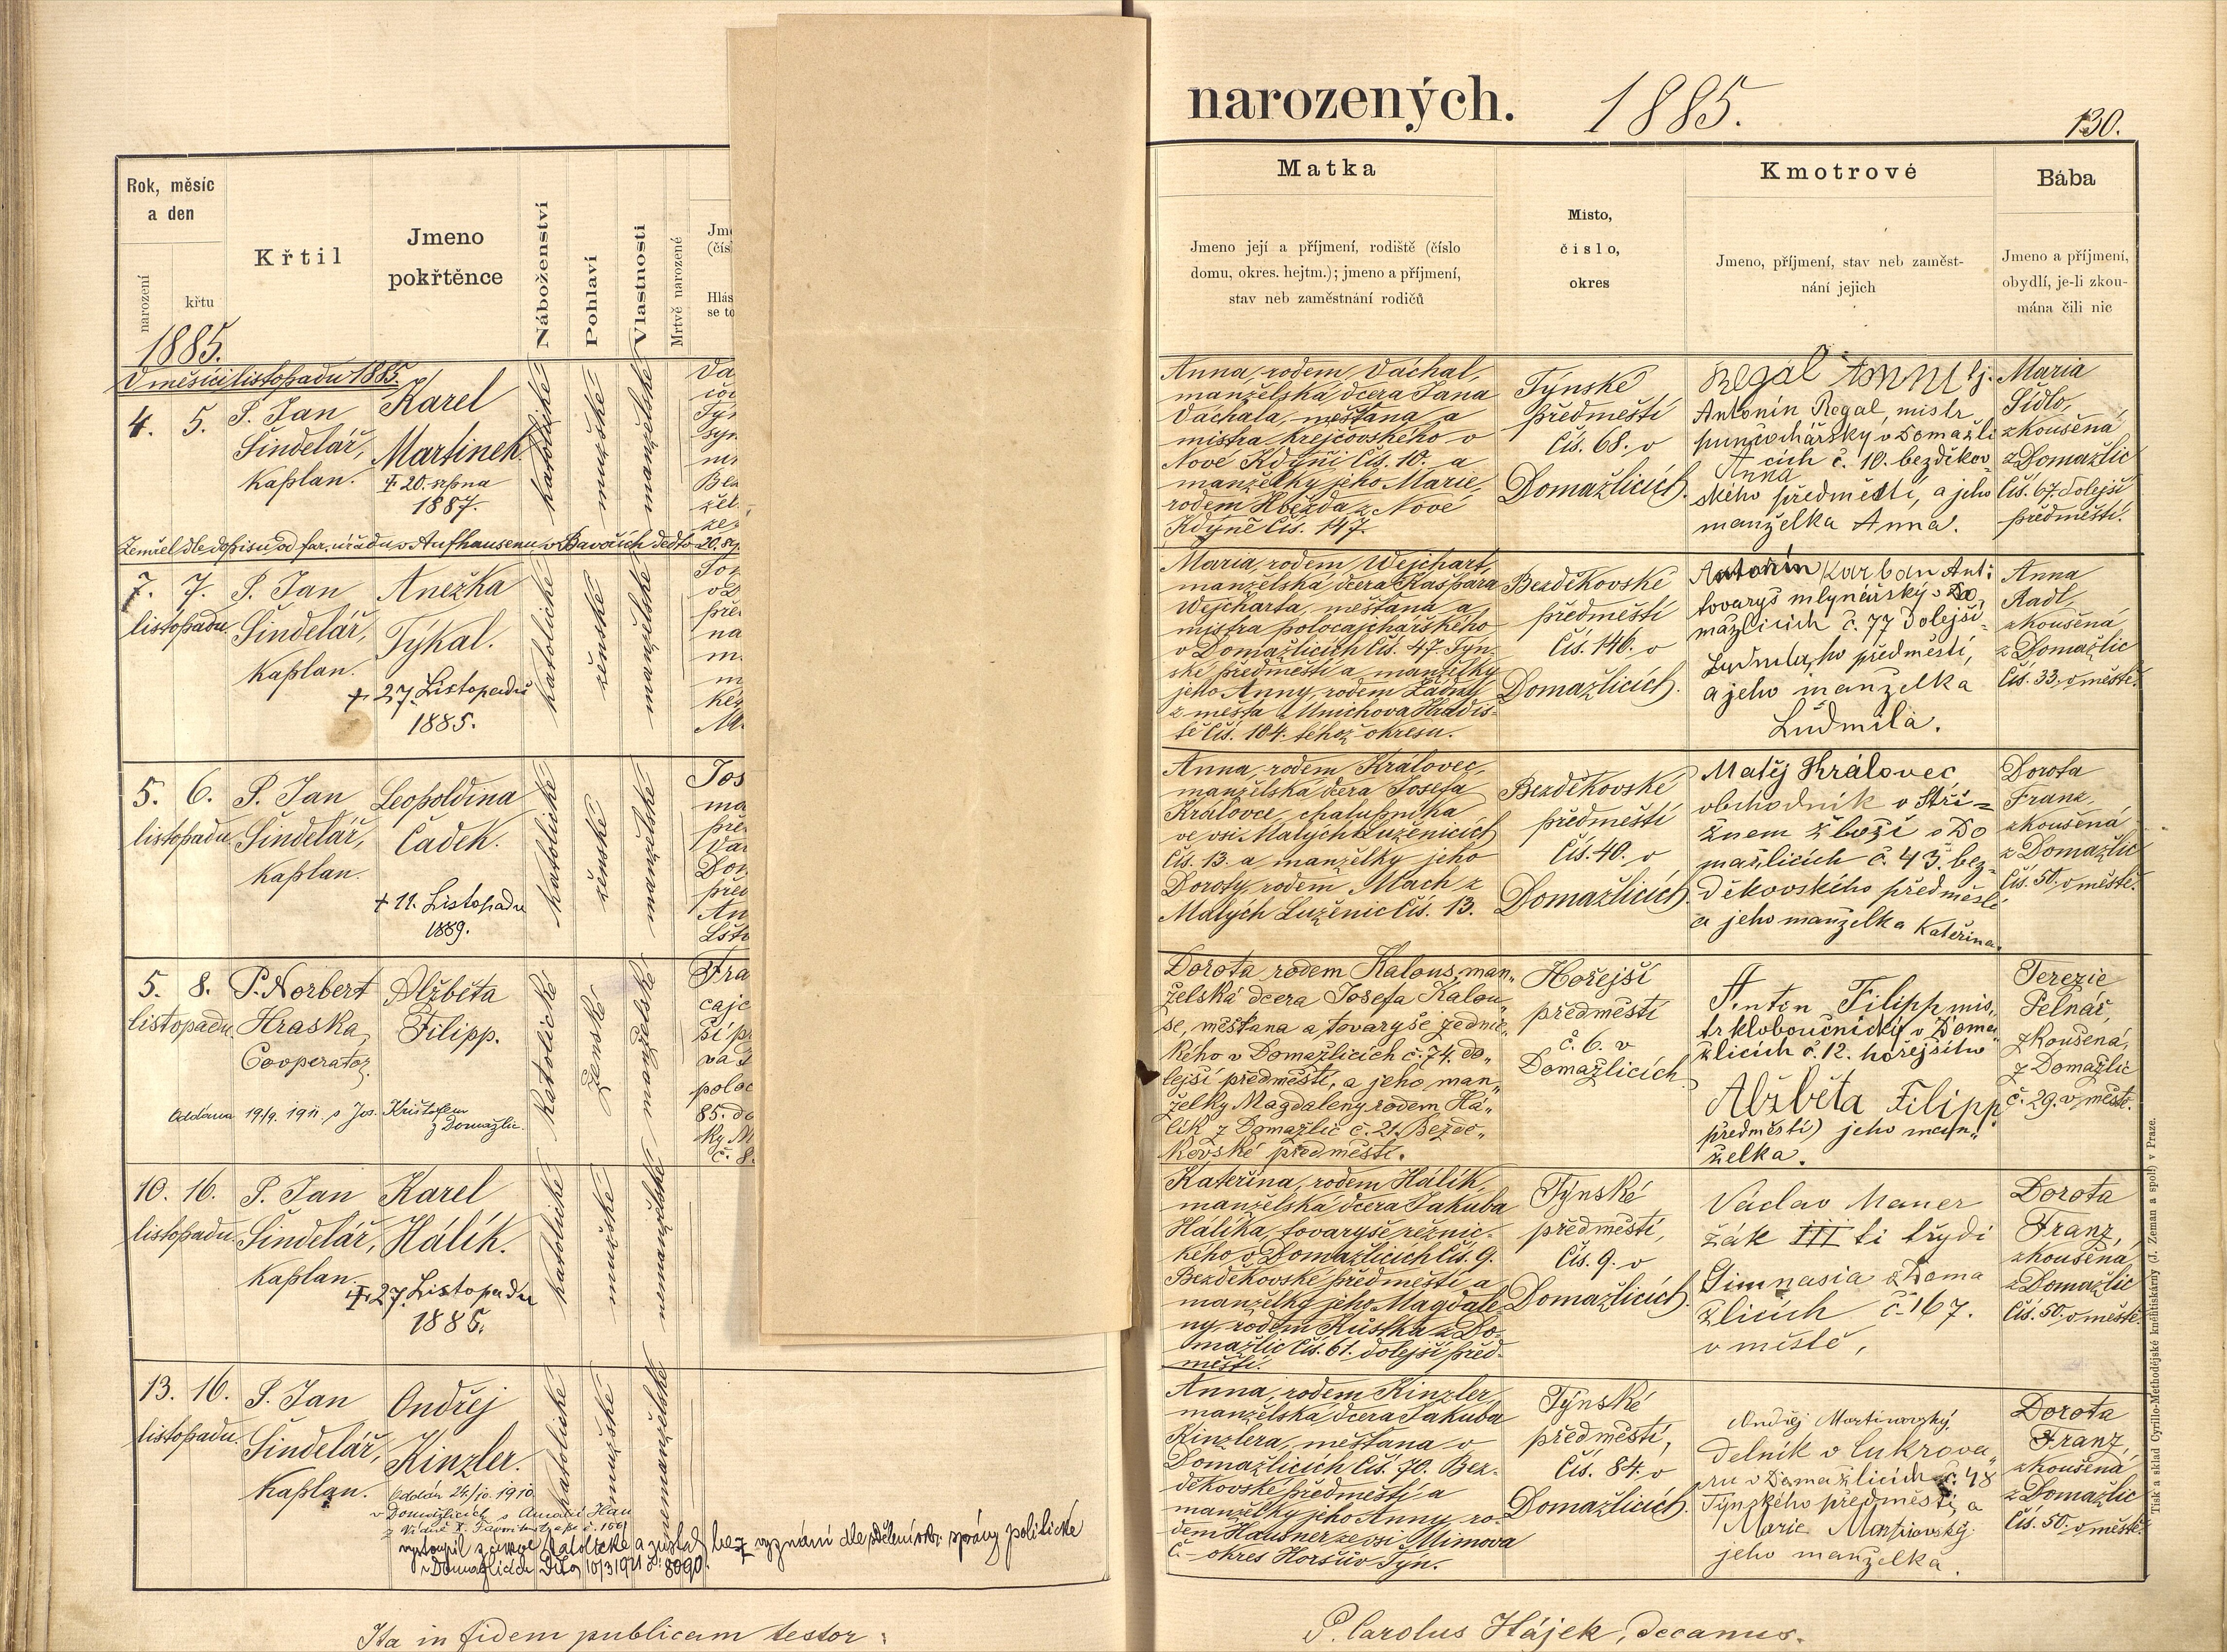 narozených. 1885.
130.
Rok, měsíc
a den
narození
křtu
Křtil
Jmeno
pokřtěnce
Náboženství
Pohlaví
Vlastnosti
Mrtvě narozené
Jm
(čís
Hlás
se to
Matka
Jmeno její a příjmení, rodiště (číslo
domu, okres. hejtm.); jmeno a příjmení,
stav neb zaměstnání rodičů
Místo,
číslo,
okres
Kmotrové
Jmeno, příjmení, stav neb zaměst-
nání jejich
Bába
Jmeno a příjmení,
obydlí, je-li zkou-
mána čili nic
1885.
V měsíci listopadu 1885.
4. 5.
P. Jan
Šindelář,
Kaplan.
Karel
Martinek.
† 20. srpna
1887.
katolické
mužské
manželské
Zemřel dle dopisu od far. úřadu v Aufhausenu v Bavořích dedto 20. srp.
Anna, rodem Váchal,
manželská dcera Jana
Váchala, měšťana a
mistra krejčovského v
Nové Kdýni čís. 10. a
manželky jeho Marie,
rodem Hvězda z Nové
Kdýně čís. 147.
Týnské
předměstí
čís. 68. v
Domažlicích.
Regál Anní tj.
Antonín Regal, mistr
punčochářský v Domažli
cích č. 10. bezděkov-
Anna
ského předměstí, a jeho
manželka Anna.
Maria
Šídlo,
zkoušená
z Domažlic
čís. 67. dolejší
předměstí.
7. 7.
listopadu.
P. Jan
Šindelář,
Kaplan.
Anežka
Týkal.
† 27. Listopadu
1885.
katolické
ženské
manželské
Maria, rodem Wejchart,
manželská dcera Kašpara
Wejcharta, měšťana a
mistra polocajchářského
v Domažlicích čís. 47. Týn-
ské předměstí a manželky
jeho Anny, rodem Žádný
z města Mnichova Hradiš-
tě čís. 104. téhož okresu.
Bezděkovské
předměstí
čís. 146. v
Domažlicích.
Antonín Karban Ant:
tovaryš mlynářský v Do,
mažlicích č. 77 dolejší-
Ludmila, ho předměstí,
a jeho manželka
Ludmila.
Anna
Aadl,
zkoušená
z Domažlic
čís. 33. v městě.
5. 6.
listopadu.
P. Jan
Šindelář,
Kaplan.
Leopoldina
Čadek.
† 11. Listopadu
1889.
katolické
ženské
manželské
Anna, rodem Královec,
manželská dcera Josefa
Královce, chalupníka
ve vsi Malých Luženicích
čís. 13. a manželky jeho
Doroty, rodem Mach z
Malých Luženic čís. 13.
Bezděkovské
předměstí
čís. 40. v
Domažlicích.
Matěj Královec
obchodník v Stři=
žném zboží v Do
mažlicích č. 43. bez-
děkovského předměstí
a jeho manželka Kateřina.
Dorota
Franz,
zkoušená
z Domažlic
čís. 50. v městě.
5. 8.
listopadu.
P. Norbert
Hraska,
Cooperator.
Alžběta
Filipp.
Oddána 19/9. 1911. s Jos. Krištofem
z Domažlic.
katolické
ženské
manželské
Dorota rodem Kalous, man„
želská dcera Josefa Kalou„
se, měšťana a tovaryše zednic„
kého v Domažlicích č. 74. do„
lejší předměstí, a jeho man„
želky Magdaleny rodem Há„
lík z Domažlic č. 21. Bezdě„
kovské předměstí.
Hořejší
předměstí
č. 6. v
Domažlicích.
Anton Filipp mis„
tr kloboučnický v Doma
žlicích č. 12. hořejšího
Alžběta Filipp
předměstí) jeho man„
želka.
Terezie
Pelnář,
zkoušená,
z Domažlic
č. 29. v městě.
10. 16.
listopadu.
P. Jan
Šindelář,
Kaplan.
Karel
Hálík.
† 27. Listopadu
1885.
katolické
mužské
nemanželské
Kateřina, rodem Hálík,
manželská dcera Jakuba
Hálíka, tovaryše řeznic-
kého v Domažlicích čís. 9.
Bezděkovské předměstí a
manželky jeho Magdale-
ny, rodem Kůstka z Do-
mažlic čís. 61. dolejší před-
městí.
Týnské
předměstí,
čís. 9. v
Domažlicích.
Václav Mauer
žák III tí třýdi
Gimnasia v Doma
žlicích č. 167.
v městě,
Dorota
Franz,
zkoušená
z Domažlic
čís. 50. v městě.
13. 16.
listopadu.
P. Jan
Šindelář,
Kaplan.
Ondřej
Kinzler.
Oddán 24./10. 1910.
v Domažlicích s Amálií Hau
vystoupil z církve katolické a zůstal bez vyznání dle sdělení okr. správy politické
v Domažlicích dto 10/3 1921 č. 8090.
katolické
mužské
nemanželské
Anna, rodem Kinzler,
manželská dcera Jakuba
Kinzlera, měšťana v
Domažlicích čís. 70. Bez-
děkovské předměstí a
manželky jeho Anny, ro-
dem Hausner ze vsi Mimova
č. - okres Horšův Týn.
Týnské
předměstí,
čís. 84. v
Domažlicích.
Ondřej Martinovský,
dělník v Cukrova„
ru v Domažlicích č. 48
Týnského předměstí a
Marie Martinovský
jeho manželka.
Dorota
Franz,
zkoušená
z Domažlic
čís. 50. v městě.
Tisk a sklad Cyrillo-Methodějské knihtiskárny (J. Zeman a spol.) v Praze.
Ita in fidem publicam testor:
P. Carolus Hájek, decanus.